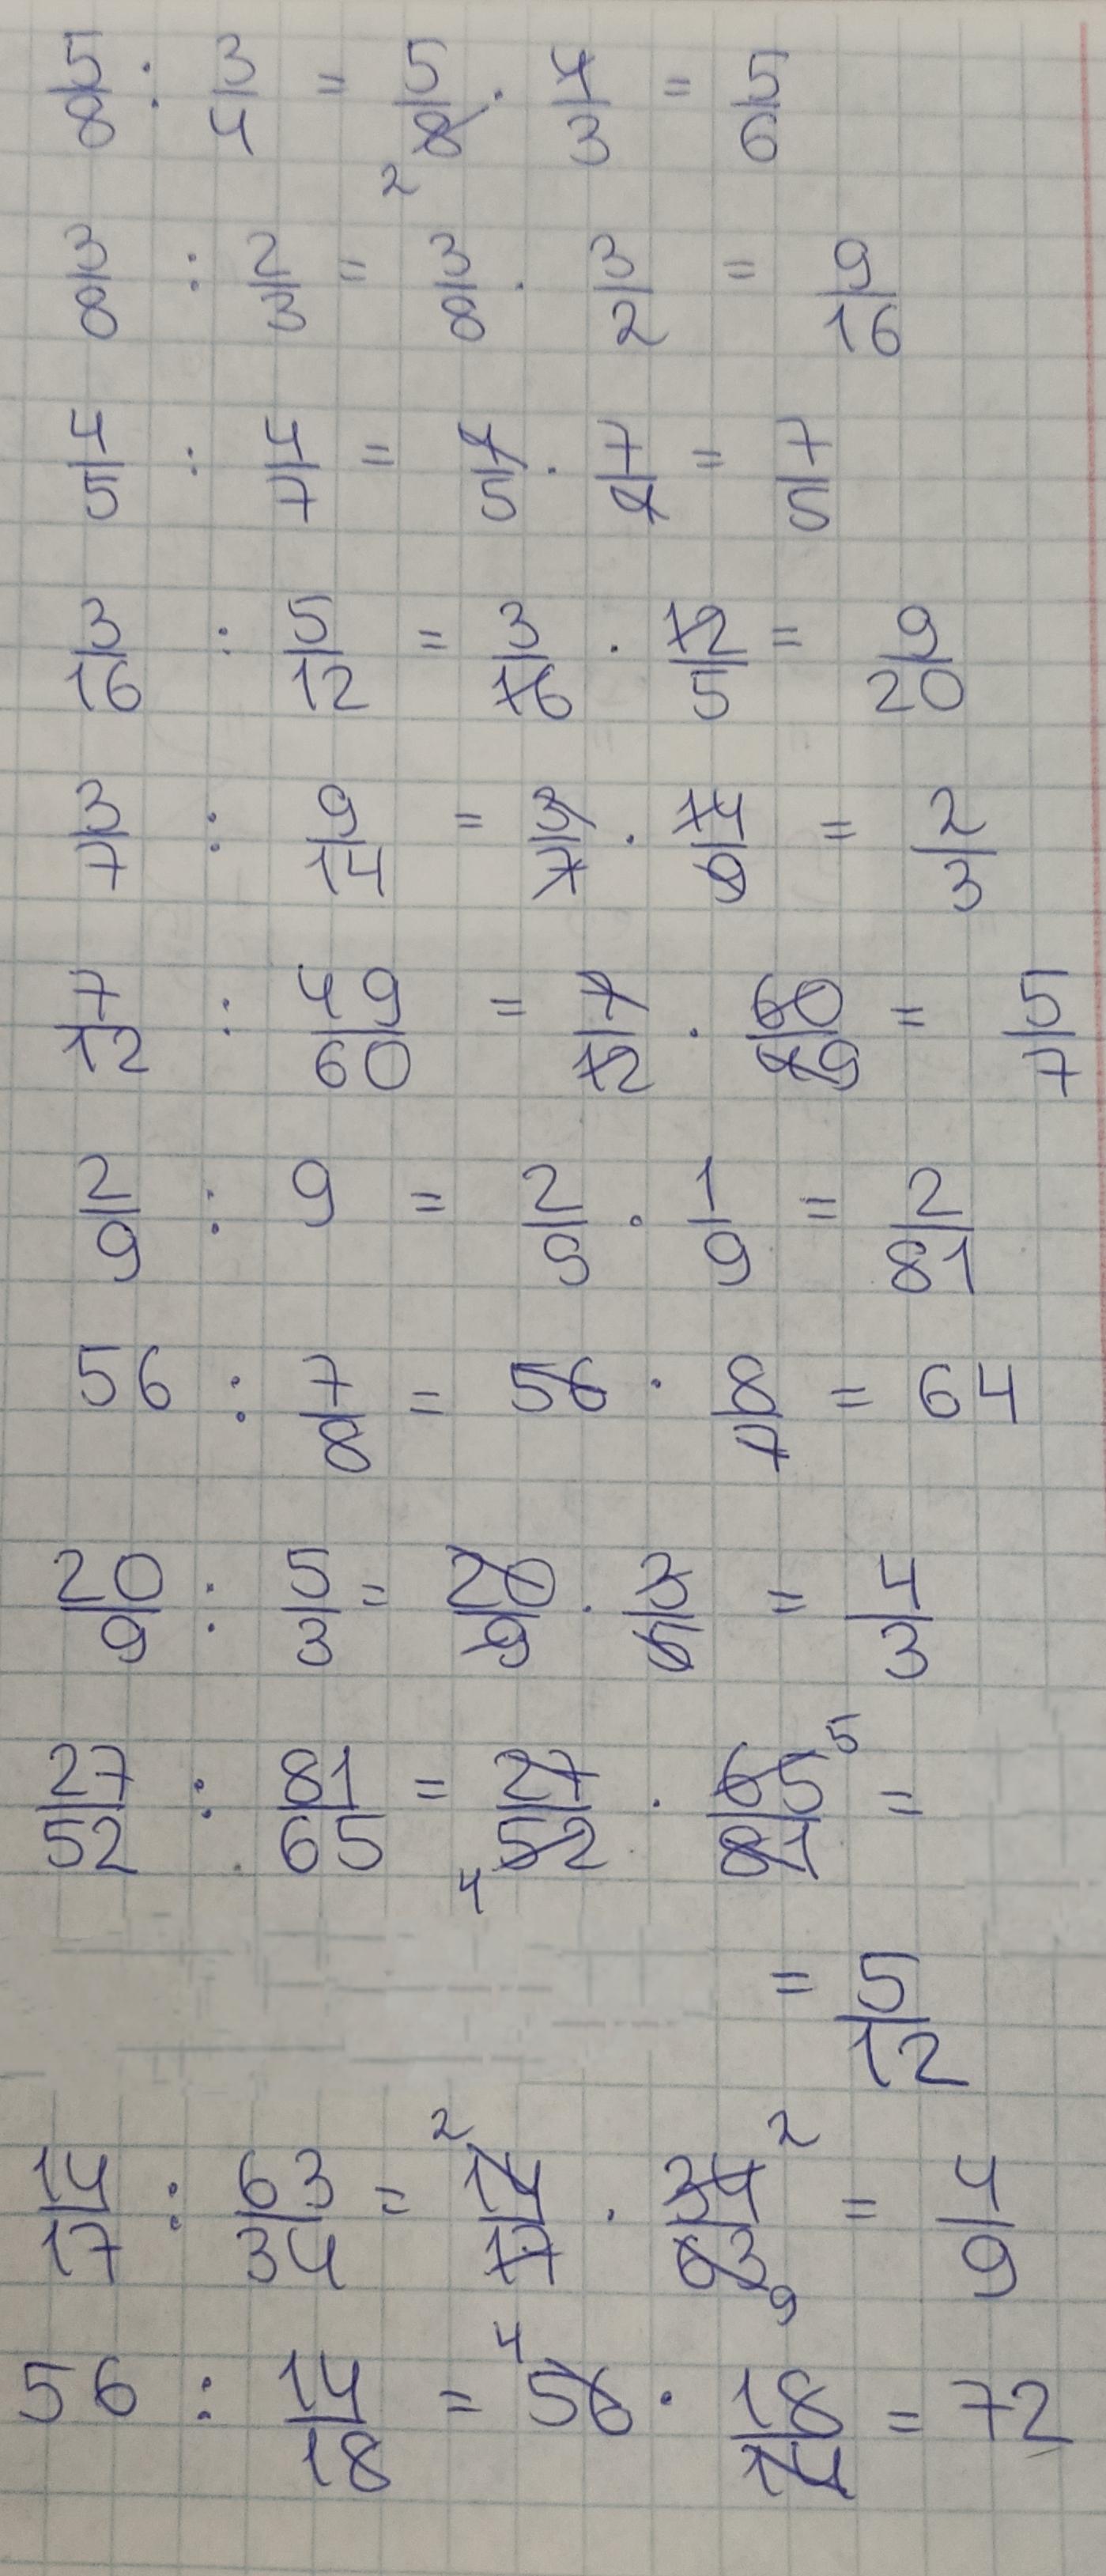 5/8 : 3/4 = 5/8 · 4/3 = 5/6
2
3/8 : 2/3 = 3/8 · 3/2 = 9/16
4/5 : 4/7 = 4/5 · 7/4 = 7/5
3/16 : 5/12 = 3/16 · 12/5 = 9/20
3/7 : 9/14 = 3/7 · 14/9 = 2/3
7/12 : 49/60 = 7/12 · 60/49 = 5/7
2/9 : 9 = 2/9 · 1/9 = 2/81
56 : 7/8 = 56 · 8/7 = 64
20/9 : 5/3 = 20/9 · 3/5 = 4/3
5
27/52 : 81/65 = 27/52 · 65/81 =
4
= 5/12
2 2
14/17 : 63/34 = 14/17 · 34/63 = 4/9
9
4
56 : 14/18 = 56 · 18/14 = 72